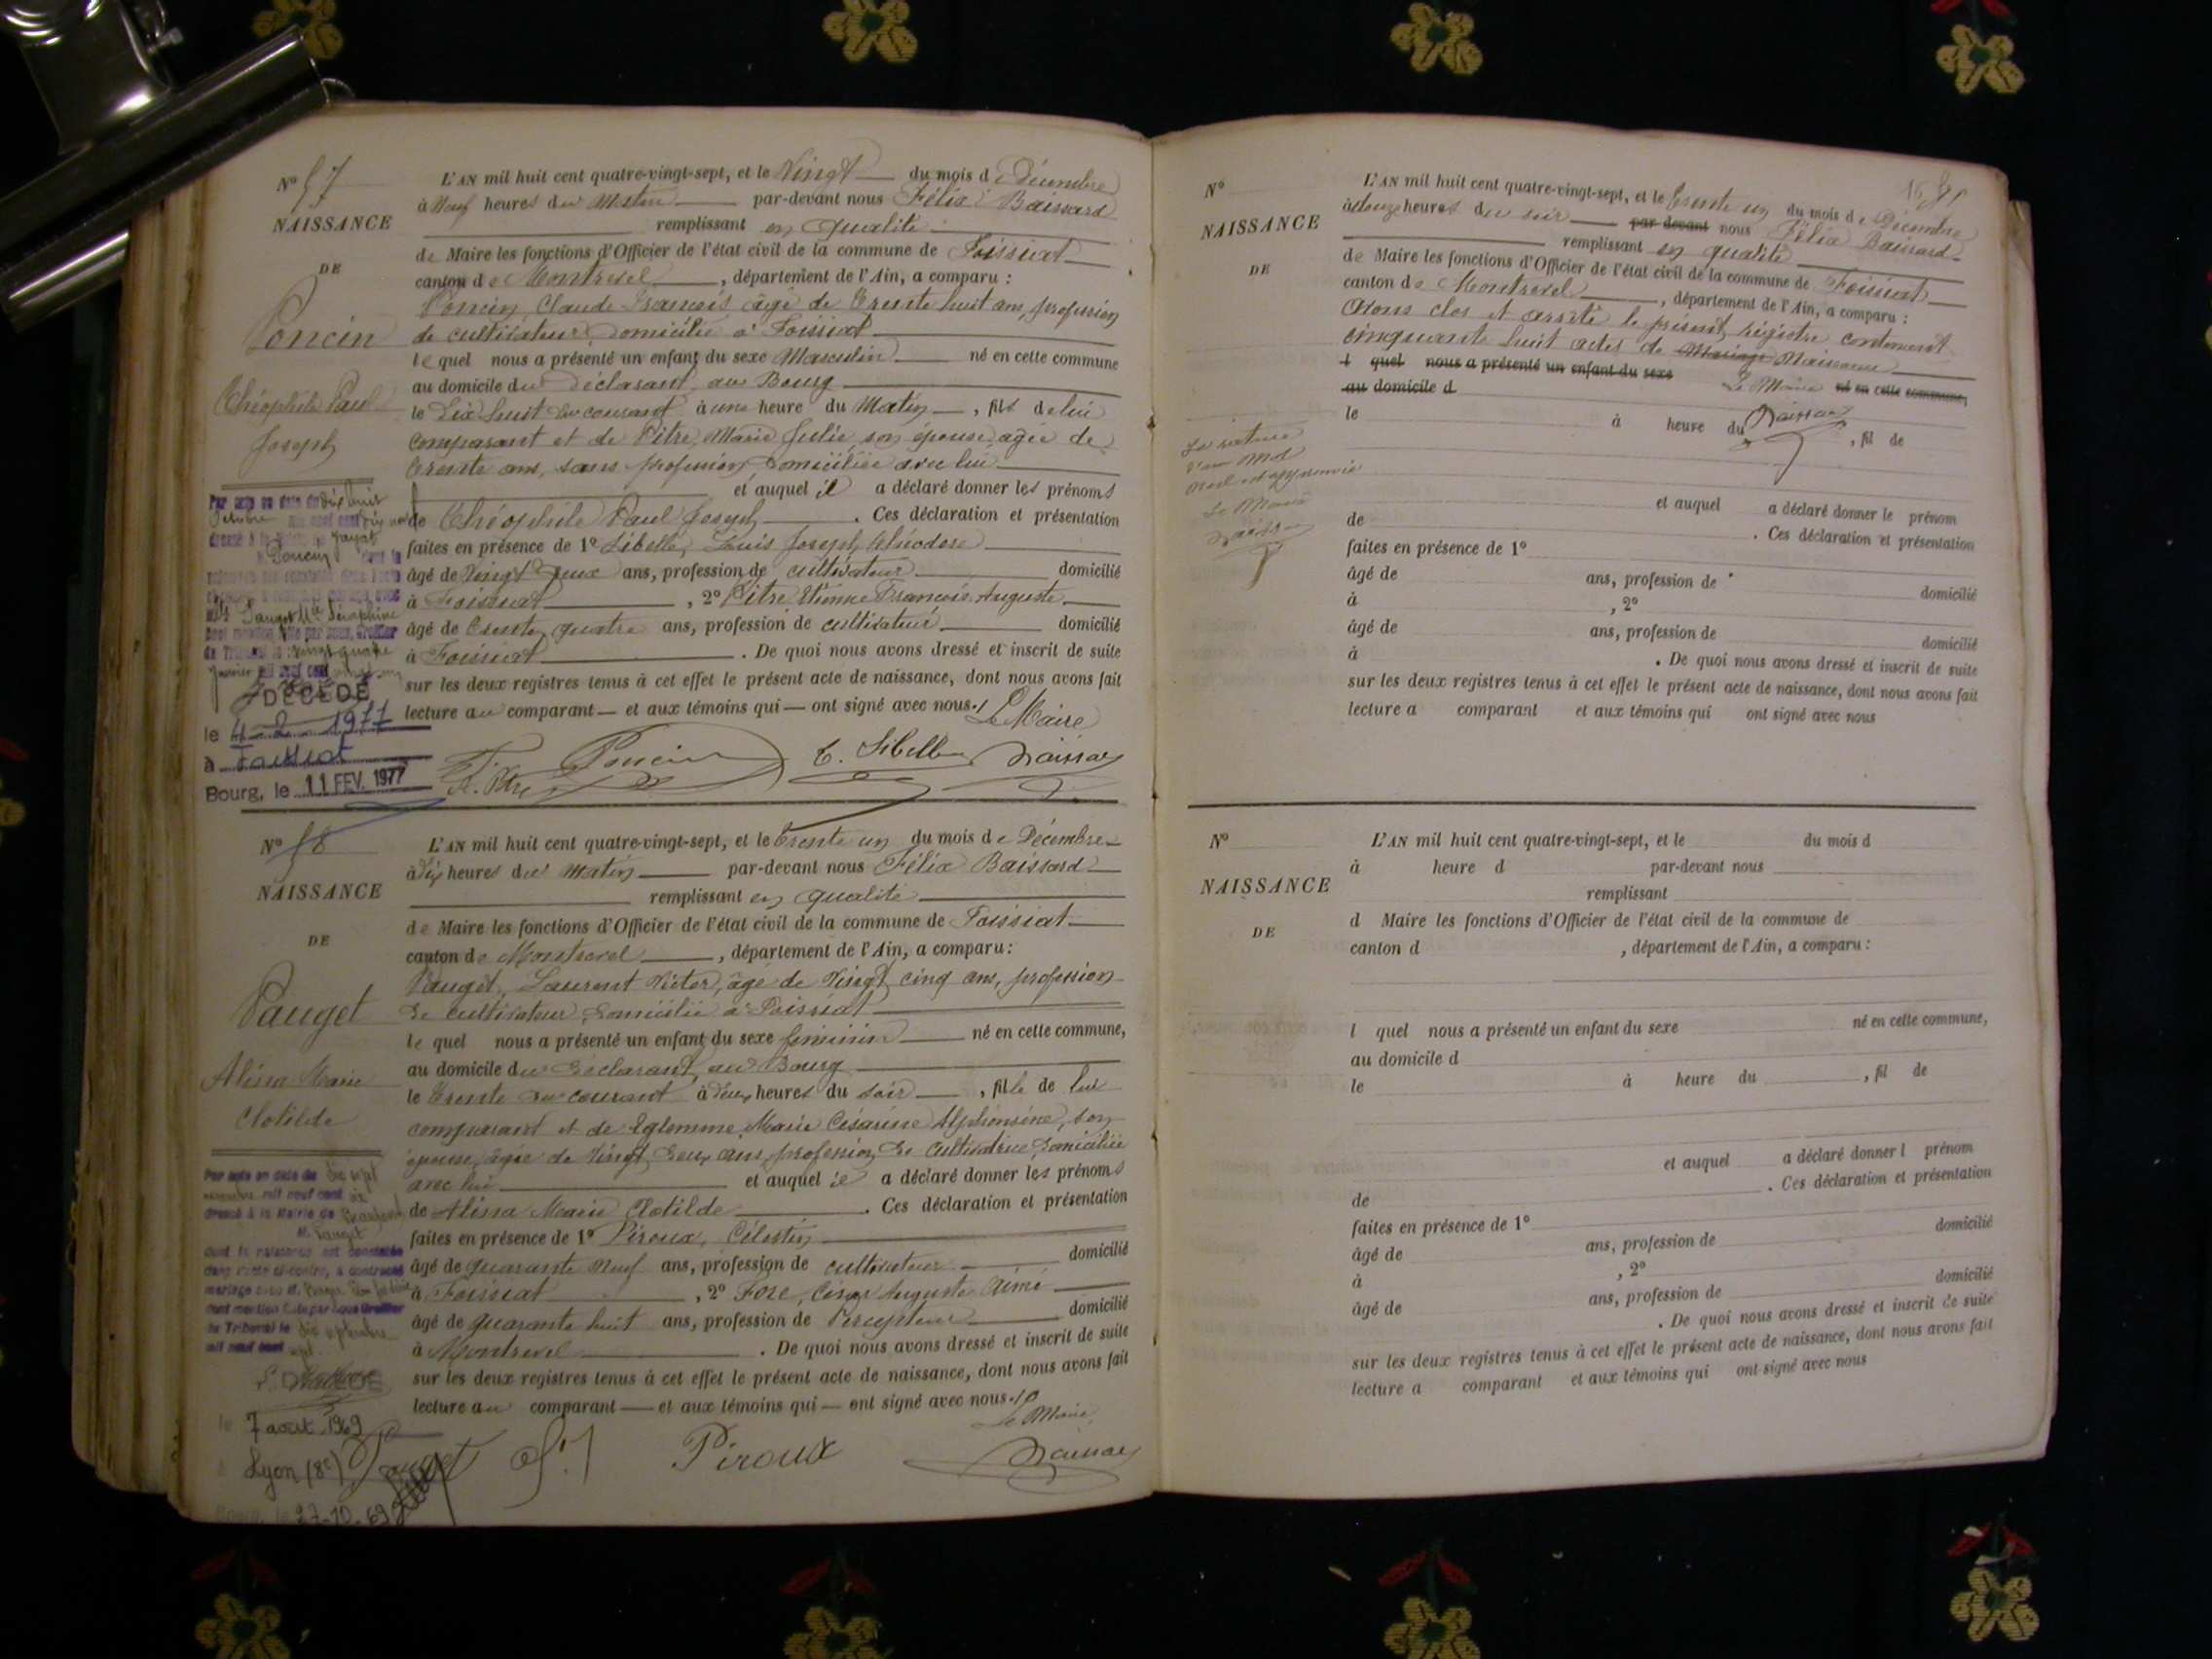 N° 57
NAISSANCE
DE
Poncin
Théophile Paul
Joseph
L'AN mil huit cent quatre-vingt-sept, et le Vingt du mois de Décembre
à Neuf heures du Matin par-devant nous Félix Baissard
remplissant en qualité
de Maire les fonctions d'Officier de l'état civil de la commune de Foissiat
canton de Montrevel, département de l'Ain, a comparu :
Poncin, Claude François, âgé de trente huit ans, profession
de cultivateur, domicilié à Foissiat
lequel nous a présenté un enfant du sexe Masculin né en cette commune
au domicile du déclarant, au Bourg
le Dix huit du courant à une heure du Matin, fils de lui
comparant et de Pitre, Marie Julie, son épouse, agée de
trente ans, sans profession, domiciliée avec lui
et auquel il a déclaré donner les prénoms
de Théophile Paul Joseph. Ces déclaration et présentation
faites en présence de 1° Sibelle, Louis Joseph Théodore
âgé de Vingt deux ans, profession de cultivateur domicilié
à Foissiat, 2° Pitre Etienne François Auguste
âgé de trente quatre ans, profession de cultivateur domicilié
à Foissiat. De quoi nous avons dressé et inscrit de suite
sur les deux registres tenus à cet effet le présent acte de naissance, dont nous avons fait
lecture au comparant et aux témoins qui ont signé avec nous. Le Maire
Poncin
DÉCÉDÉ
le 4-2-1977
à Foissiat
Bourg, le 11 FEV. 1977
N° 58
NAISSANCE
DE
Pauget
Alina Marie
Clotilde
L'AN mil huit cent quatre-vingt-sept, et le trente un du mois de Décembre
à dix heures du Matin par-devant nous Félix Baissard
remplissant en qualité
de Maire les fonctions d'Officier de l'état civil de la commune de Foissiat
canton de Montrevel, département de l'Ain, a comparu :
Pauget, Laurent Victor, âgé de Vingt cinq ans, profession
de cultivateur, domicilié à Foissiat
lequel nous a présenté un enfant du sexe féminin né en cette commune,
au domicile du déclarant, au Bourg
le trente du courant à deux heures du soir, fille de lui
comparant et de Eglemme, Marie Césarine Alphonsine, son
épouse, agée de Vingt deux ans, profession de cultivatrice, domiciliée
avec lui et auquel il a déclaré donner les prénoms
de Alina Marie Clotilde. Ces déclaration et présentation
faites en présence de 1° Piroux, Célestin
âgé de quarante neuf ans, profession de cultivateur domicilié
à Foissiat, 2° César Auguste Aimé
âgé de quarante huit ans, profession de Percepteur domicilié
à Montrevel. De quoi nous avons dressé et inscrit de suite
sur les deux registres tenus à cet effet le présent acte de naissance, dont nous avons fait
lecture au comparant et aux témoins qui ont signé avec nous.
Le Maire
Pauget Piroux
DÉCÉDÉE
le 7 août 1969
à Lyon (8e)
Bourg, le 27-10-69
N°
NAISSANCE
DE
L'AN mil huit cent quatre-vingt-sept, et le trente un du mois de Décembre
à douze heures du soir par-devant nous Félix Baissard
remplissant en qualité
de Maire les fonctions d'Officier de l'état civil de la commune de Foissiat
canton de Montrevel, département de l'Ain, a comparu :
Avons clos et arrêté le présent registre contenant
cinquante huit actes de Mariage Naissance
l quel nous a présenté un enfant du sexe né en cette commune,
Le Maire
au domicile d
le à heure du , fil de
La rature
d'un mot
nul et approuvée
Le Maire
et auquel a déclaré donner le prénom
de . Ces déclaration et présentation
faites en présence de 1°
âgé de ans, profession de domicilié
à , 2°
âgé de ans, profession de domicilié
à . De quoi nous avons dressé et inscrit de suite
sur les deux registres tenus à cet effet le présent acte de naissance, dont nous avons fait
lecture a comparant et aux témoins qui ont signé avec nous
N°
NAISSANCE
DE
L'AN mil huit cent quatre-vingt-sept, et le du mois d
à heure d par-devant nous
remplissant
d Maire les fonctions d'Officier de l'état civil de la commune de
canton d , département de l'Ain, a comparu :
l quel nous a présenté un enfant du sexe né en cette commune,
au domicile d
le à heure du , fil de
et auquel a déclaré donner l prénom
de . Ces déclaration et présentation
faites en présence de 1°
âgé de ans, profession de domicilié
à , 2°
âgé de ans, profession de domicilié
. De quoi nous avons dressé et inscrit de suite
sur les deux registres tenus à cet effet le présent acte de naissance, dont nous avons fait
lecture a comparant et aux témoins qui ont signé avec nous